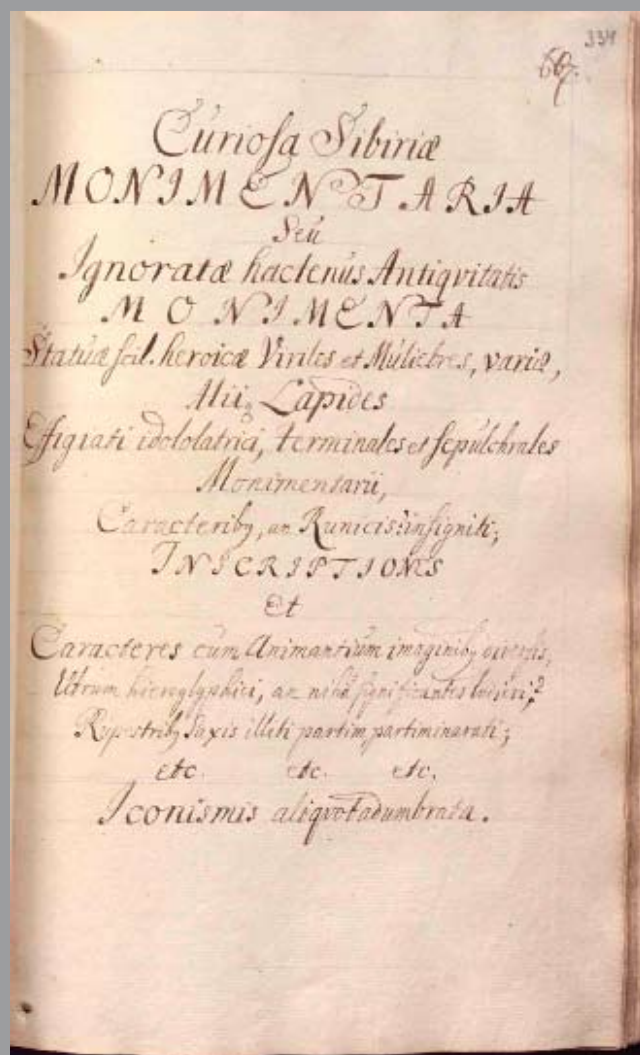 334
667.
Curiosa Sibiriæ
MONIMENTARIA
Seu
Ignoratæ hactenus Antiqvitatis
MONIMENTA
Statuæ scil. heroicæ Viriles et Muliebres, variæ,
Alii Lapides
Effigiati idololatrici, terminales et sepulchrales
Monimentarii,
Caracterib9, an Runicis? insigniti;
INSCRIPTIONES
Et
Caracteres cum Animantium imaginib9 diversis,
Utrum hieroglyphici, an significantes
Rupestrib9 Saxis illiti partim, partim inarati;
etc. etc. etc.
Iconismis aliqvot adumbrata.